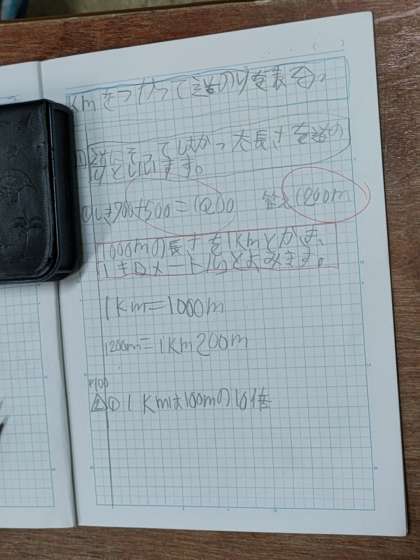 kmをつかって道のりを表そう。
道にそってはかった長さを道の
りといいます。
しき700+500=1200 答え1200m
1000mの長さを1kmとかき、
1キロメートルとよみます。
1km=1000m
1200m=1km200m
P100
① 1kmは100mの10倍